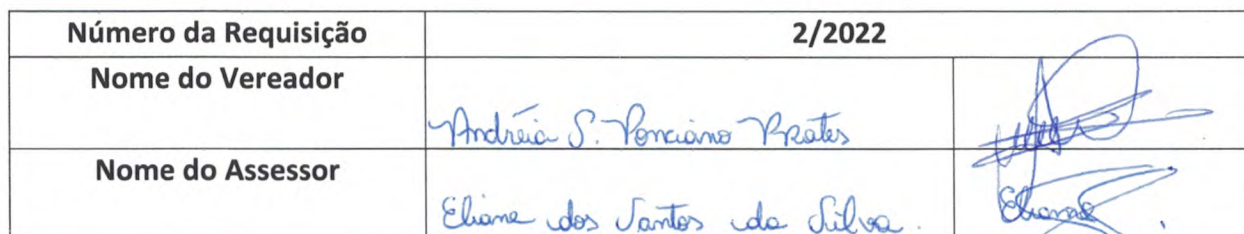 Número da Requisição 2/2022
Nome do Vereador
Andréia S. Ponciano Prates
Nome do Assessor
Eliane dos Santos da Silva. Eliane